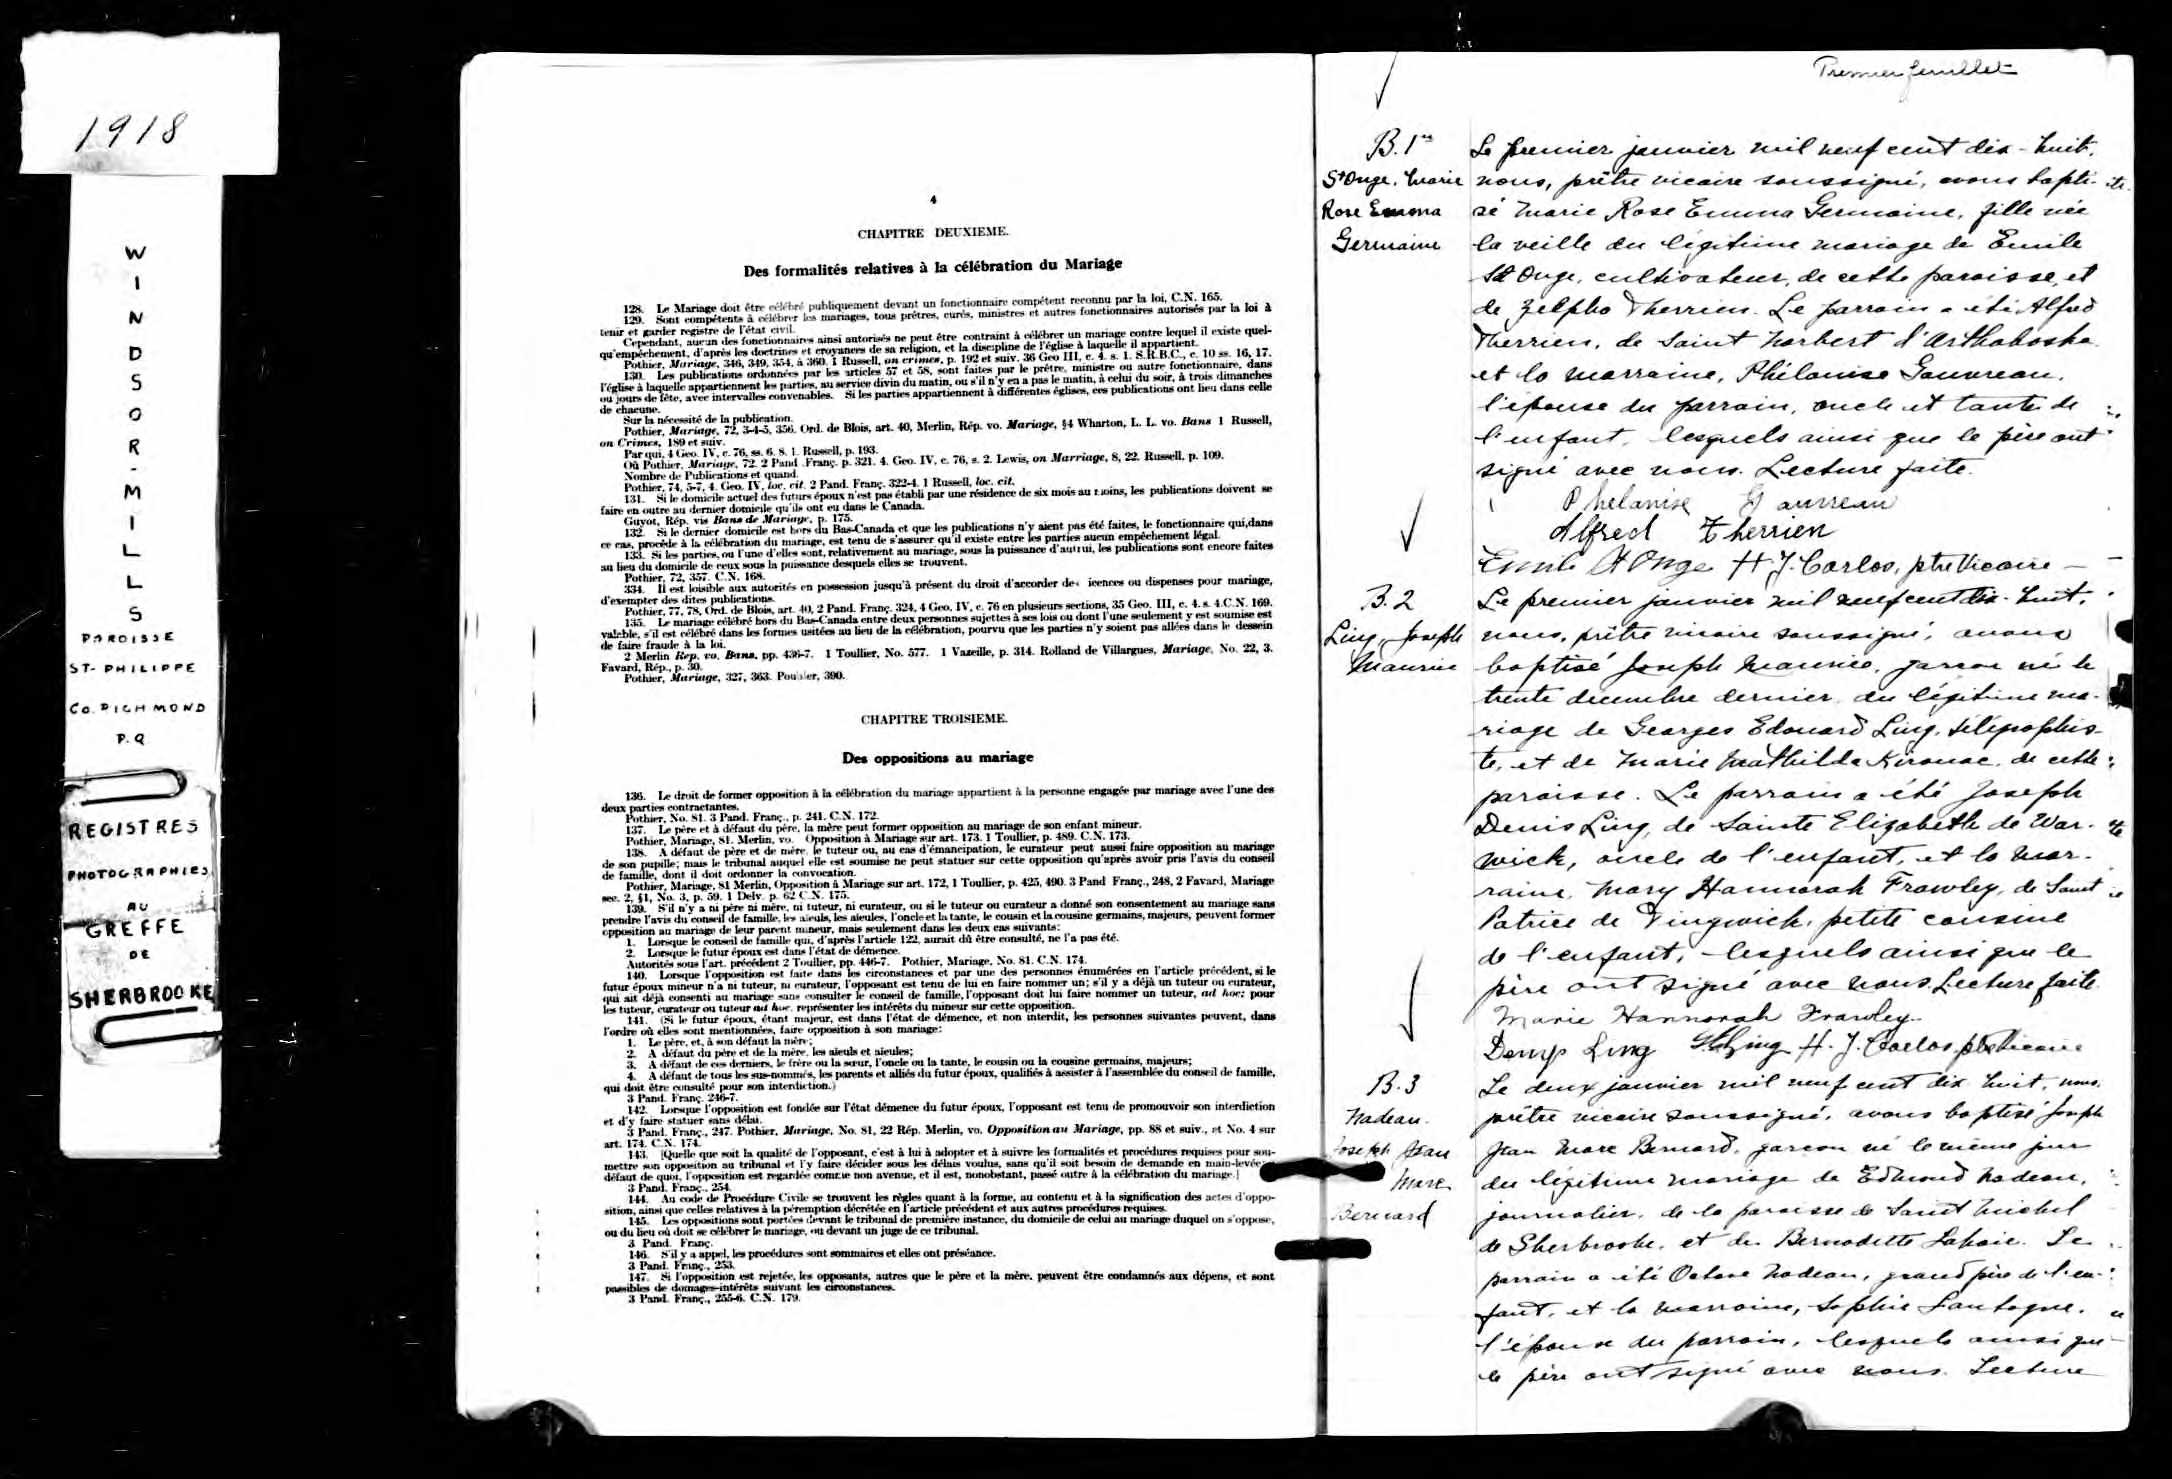 1918
WINDSOR-MILLS
PAROISSE
ST-PHILIPPE
Co. RICHMOND
P.Q
REGISTRES
PHOTOGRAPHIES
AU
GREFFE
DE
SHERBROOKE
4
CHAPITRE DEUXIEME.
Des formalités relatives à la célébration du Mariage
128. Le Mariage doit être célébré publiquement devant un fonctionnaire compétent reconnu par la loi, C.N. 165.
129. Sont compétents à célébrer les mariages, tous prêtres, curés, ministres et autres fonctionnaires autorisés par la loi à
tenir et garder registre de l'état civil.
Cependant, aucun des fonctionnaires ainsi autorisés ne peut être contraint à célébrer un mariage contre lequel il existe quel-
qu'empêchement, d'après les doctrines et croyances de sa religion, et la discipline de l'église à laquelle il appartient.
Pothier, Mariage, 346, 349, 354, à 360. 1 Russell, on crimes, p. 192 et suiv. 36 Geo III, c. 4. s. 1. S.R.B.C., c. 10 ss. 16, 17.
130. Les publications ordonnées par les articles 57 et 58, sont faites par le prêtre, ministre ou autre fonctionnaire, dans
l'église à laquelle appartiennent les parties, au service divin du matin, ou s'il n'y en a pas le matin, à celui du soir, à trois dimanches
ou jours de fête, avec intervalles convenables. Si les parties appartiennent à différentes églises, ces publications ont lieu dans celle
de chacune.
Sur la nécessité de la publication.
Pothier, Mariage, 72, 3-4-5, 356. Ord. de Blois, art. 40, Merlin, Rép. vo. Mariage, §4 Wharton, L. L. vo. Bans 1 Russell,
on Crimes, 189 et suiv.
Par qui, 4 Geo. IV, c. 76, ss. 6. 8. 1. Russell, p. 193.
Où Pothier, Mariage, 72. 2 Pand .Franç. p. 321. 4. Geo. IV, c. 76, s. 2. Lewis, on Marriage, 8, 22. Russell, p. 109.
Nombre de Publications et quand.
Pothier, 74, 5-7, 4. Geo. IV, loc. cit. 2 Pand. Franç. 322-4. 1 Russell, loc. cit.
131. Si le domicile actuel des futurs époux n'est pas établi par une résidence de six mois au moins, les publications doivent se
faire en outre au dernier domicile qu'ils ont eu dans le Canada.
Guyot, Rép. vis Bans de Mariage, p. 175.
132. Si le dernier domicile est hors du Bas-Canada et que les publications n'y aient pas été faites, le fonctionnaire qui,dans
ce cas, procède à la célébration du mariage, est tenu de s'assurer qu'il existe entre les parties aucun empêchement légal.
133. Si les parties, ou l'une d'elles sont, relativement au mariage, sous la puissance d'autrui, les publications sont encore faites
au lieu du domicile de ceux sous la puissance desquels elles se trouvent.
Pothier, 72, 357. C.N. 168.
334. Il est loisible aux autorités en possession jusqu'à présent du droit d'accorder des icences ou dispenses pour mariage,
d'exempter des dites publications.
Pothier, 77, 78, Ord. de Blois, art. 40, 2 Pand. Franç. 324, 4 Geo. IV, c. 76 en plusieurs sections, 35 Geo. III, c. 4. s. 4.C.N. 169.
135. Le mariage célébré hors du Bas-Canada entre deux personnes sujettes à ses lois ou dont l'une seulement y est soumise est
valable, s'il est célébré dans les formes usitées au lieu de la célébration, pourvu que les parties n'y soient pas allées dans le dessein
de faire fraude à la loi.
2 Merlin Rep. vo. Bans, pp. 436-7. 1 Toullier, No. 577. 1 Vazeille, p. 314. Rolland de Villargues, Mariage, No. 22, 3.
Favard, Rép., p. 30.
Pothier, Mariage, 327, 363. 390.
CHAPITRE TROISIEME.
Des oppositions au mariage
136. Le droit de former opposition à la célébration du mariage appartient à la personne engagée par mariage avec l'une des
deux parties contractantes.
Pothier, No. 81. 3 Pand. Franç., p. 241. C.N. 172.
137. Le père et à défaut du père, la mère peut former opposition au mariage de son enfant mineur.
Pothier, Mariage, 81. Merlin, vo. Opposition à Mariage sur art. 173. 1 Toullier, p. 489. C.N. 173.
138. A défaut de père et de mère, le tuteur ou, au cas d'émancipation, le curateur peut aussi faire opposition au mariage
de son pupille; mais le tribunal auquel elle est soumise ne peut statuer sur cette opposition qu'après avoir pris l'avis du conseil
de famille, dont il doit ordonner la convocation.
Pothier, Mariage, 81 Merlin, Opposition à Mariage sur art. 172, 1 Toullier, p. 425, 490. 3 Pand Franç., 248, 2 Favard, Mariage
sec. 2, §1, No. 3, p. 59. 1 Delv. p. 62 C.N. 175.
139. S'il n'y a ni père ni mère, ni tuteur, ni curateur, ou si le tuteur ou curateur a donné son consentement au mariage sans
prendre l'avis du conseil de famille, les aïeuls, les aïeules, l'oncle et la tante, le cousin et la cousine germains, majeurs, peuvent former
opposition au mariage de leur parent mineur, mais seulement dans les deux cas suivants:
1. Lorsque le conseil de famille qui, d'après l'article 122, aurait dû être consulté, ne l'a pas été.
2. Lorsque le futur époux est dans l'état de démence.
Autorités sous l'art. précédent 2 Toullier, pp. 446-7. Pothier, Mariage, No. 81. C.N. 174.
140. Lorsque l'opposition est faite dans les circonstances et par une des personnes énumérées en l'article précédent, si le
futur époux mineur n'a ni tuteur, ni curateur, l'opposant est tenu de lui en faire nommer un; s'il y a déjà un tuteur ou curateur,
qui ait déjà consenti au mariage sans consulter le conseil de famille, l'opposant doit lui faire nommer un tuteur, ad hoc; pour
les tuteur, curateur ou tuteur ad hoc, représenter les intérêts du mineur sur cette opposition.
141. (Si le futur époux, étant majeur, est dans l'état de démence, et non interdit, les personnes suivantes peuvent, dans
l'ordre où elles sont mentionnées, faire opposition à son mariage:
1. Le père, et, à son défaut la mère;
2. A défaut du père et de la mère, les aïeuls et aïeules;
3. A défaut de ces derniers, le frère ou la sœur, l'oncle ou la tante, le cousin ou la cousine germains, majeurs;
4. A défaut de tous les sus-nommés, les parents et alliés du futur époux, qualifiés à assister à l'assemblée du conseil de famille,
qui doit être consulté pour son interdiction.)
3 Pand. Franç. 246-7.
142. Lorsque l'opposition est fondée sur l'état démence du futur époux, l'opposant est tenu de promouvoir son interdiction
et d'y faire statuer sans délai.
3 Pand. Franç., 247. Pothier, Mariage, No. 81, 22 Rép. Merlin, vo. Opposition au Mariage, pp. 88 et suiv., et No. 4 sur
art. 174. C.N. 174.
143. [Quelle que soit la qualité de l'opposant, c'est à lui à adopter et à suivre les formalités et procédures requises pour sou-
mettre son opposition au tribunal et l'y faire décider sous les délais voulus, sans qu'il soit besoin de demande en main-levée
défaut de quoi, l'opposition est regardée comme non avenue, et il est, nonobstant, passé outre à la célébration du mariage.]
3 Pand. Franç., 254.
144. Au code de Procédure Civile se trouvent les règles quant à la forme, au contenu et à la signification des actes d'oppo-
sition, ainsi que celles relatives à la péremption décrétée en l'article précédent et aux autres procédures requises.
145. Les oppositions sont portées devant le tribunal de première instance, du domicile de celui au mariage duquel on s'oppose,
ou du lieu où doit se célébrer le mariage, ou devant un juge de ce tribunal.
3 Pand. Franç.
146. S'il y a appel, les procédures sont sommaires et elles ont préséance.
3 Pand. Franç., 253.
147. Si l'opposition est rejetée, les opposants, autres que le père et la mère, peuvent être condamnés aux dépens, et sont
passibles de domages-intérêts suivant les circonstances.
3 Pand. Franç., 255-6. C.N. 179.
Premier feuillet
B. 1er
St Onge, Marie
Rose Emma
Germaine
Le premier janvier mil neuf cent dix-huit,
nous, prêtre vicaire soussigné, avons bapti-
sé Marie Rose Emma Germaine, fille née
la veille du légitime mariage de Emile
St Onge, cultivateur, de cette paroisse, et
de Zelpha Therrien. Le parrain a été Alfred
Therrien, de Saint Norbert d'Arthabaska
et la marraine, Phélanise Gauvreau,
l'épouse du parrain, oncle et tante de
l'enfant, lesquels ainsi que le père ont
signé avec nous. Lecture faite.
Phelanise Gauvreau
Alfred Therrien
Emile St Onge H. J. Carlos, ptre Vicaire
B. 2
Ling, Joseph
Maurice
Le premier janvier mil neuf cent dix-huit,
nous, prêtre vicaire soussigné, avons
baptisé Joseph Maurice, garçon né le
trente décembre dernier du légitime ma-
riage de Georges Edouard Ling, télégraphis-
te, et de Marie Mathilda Kirouac, de cette
paroisse. Le parrain a été Joseph
Denis Ling, de Sainte Elizabeth de War-
wick, oncle de l'enfant, et la mar-
raine, Mary Hannorah Frawley, de Saint
Patrice de Tingwick, petite cousine
de l'enfant, lesquels ainsi que le
père ont signé avec nous. Lecture faite.
Marie Hannorah Frawley
Denys Ling Ling H. J. Carlos, ptre Vicaire
B. 3
Nadeau
Joseph Jean
Marc
Bernard
Le deux janvier mil neuf cent dix-huit, nous,
prêtre vicaire soussigné, avons baptisé Joseph
Jean Marc Bernard, garçon né le même jour
du légitime mariage de Edmond Nadeau,
journalier, de la paroisse de Saint Michel
de Sherbrooke, et de Bernadette Lahaie. Le
parrain a été Octave Nadeau, grand père de l'en-
fant, et la marraine, Sophie Lantagne,
l'épouse du parrain, lesquels ainsi que
le père ont signé avec nous. Lecture